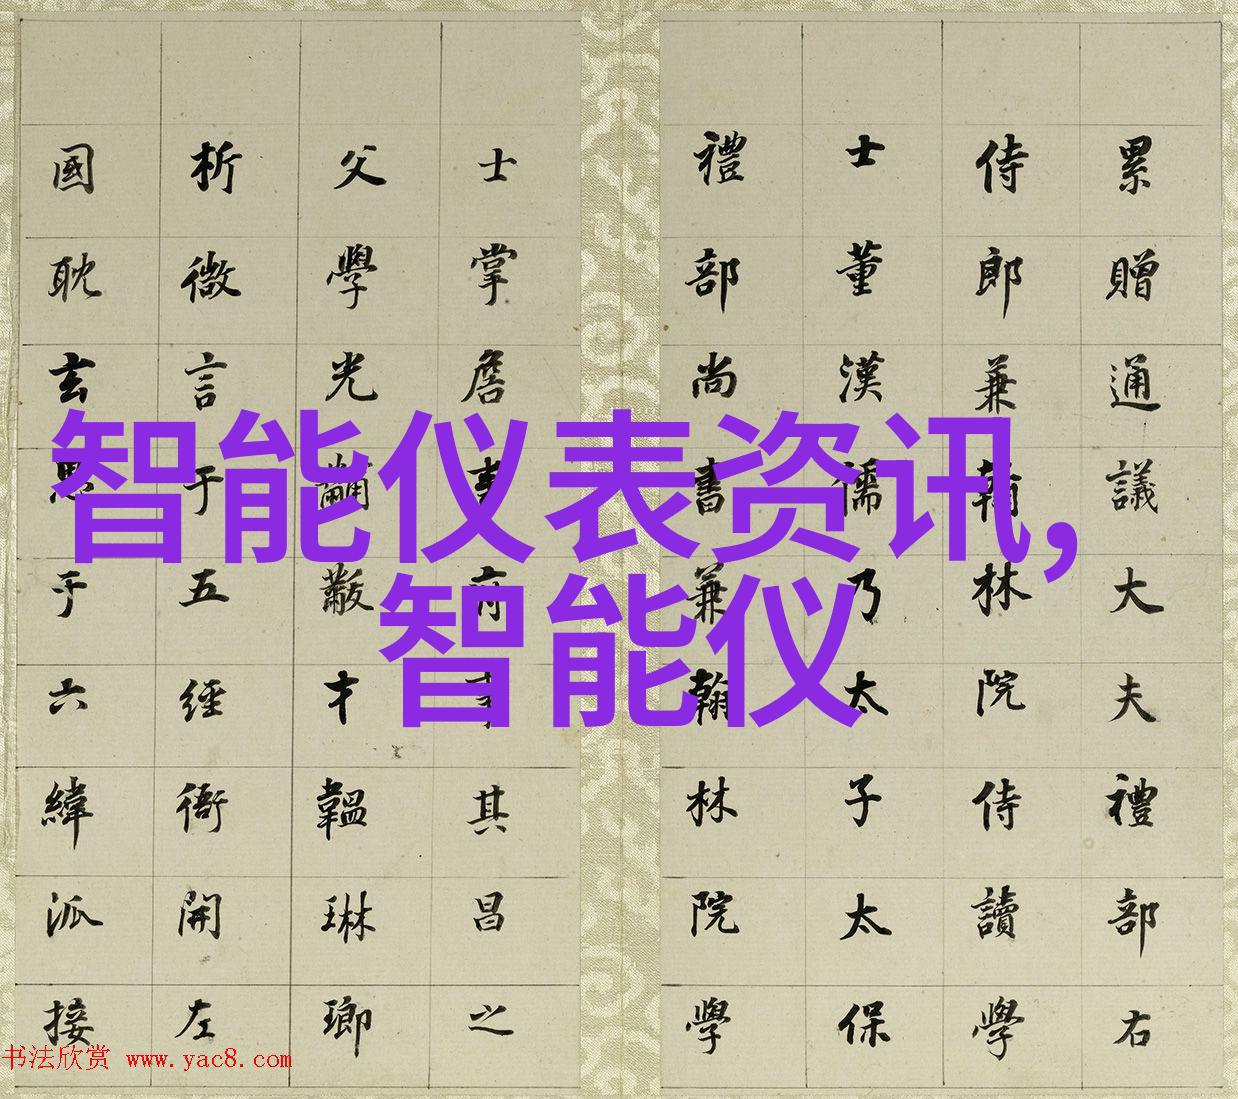 累贈通議大夫禮部右
侍郎兼翰林院侍讀學
士董漢儒乃太子太保
禮部尚書兼翰林院學
士掌詹事府事其昌之
父學光黼黻才韞琳瑯
析微言于五經開左
國耽玄思于六緯派接
智能仪表资讯,
智能仪
书法欣赏 www.yac8.com